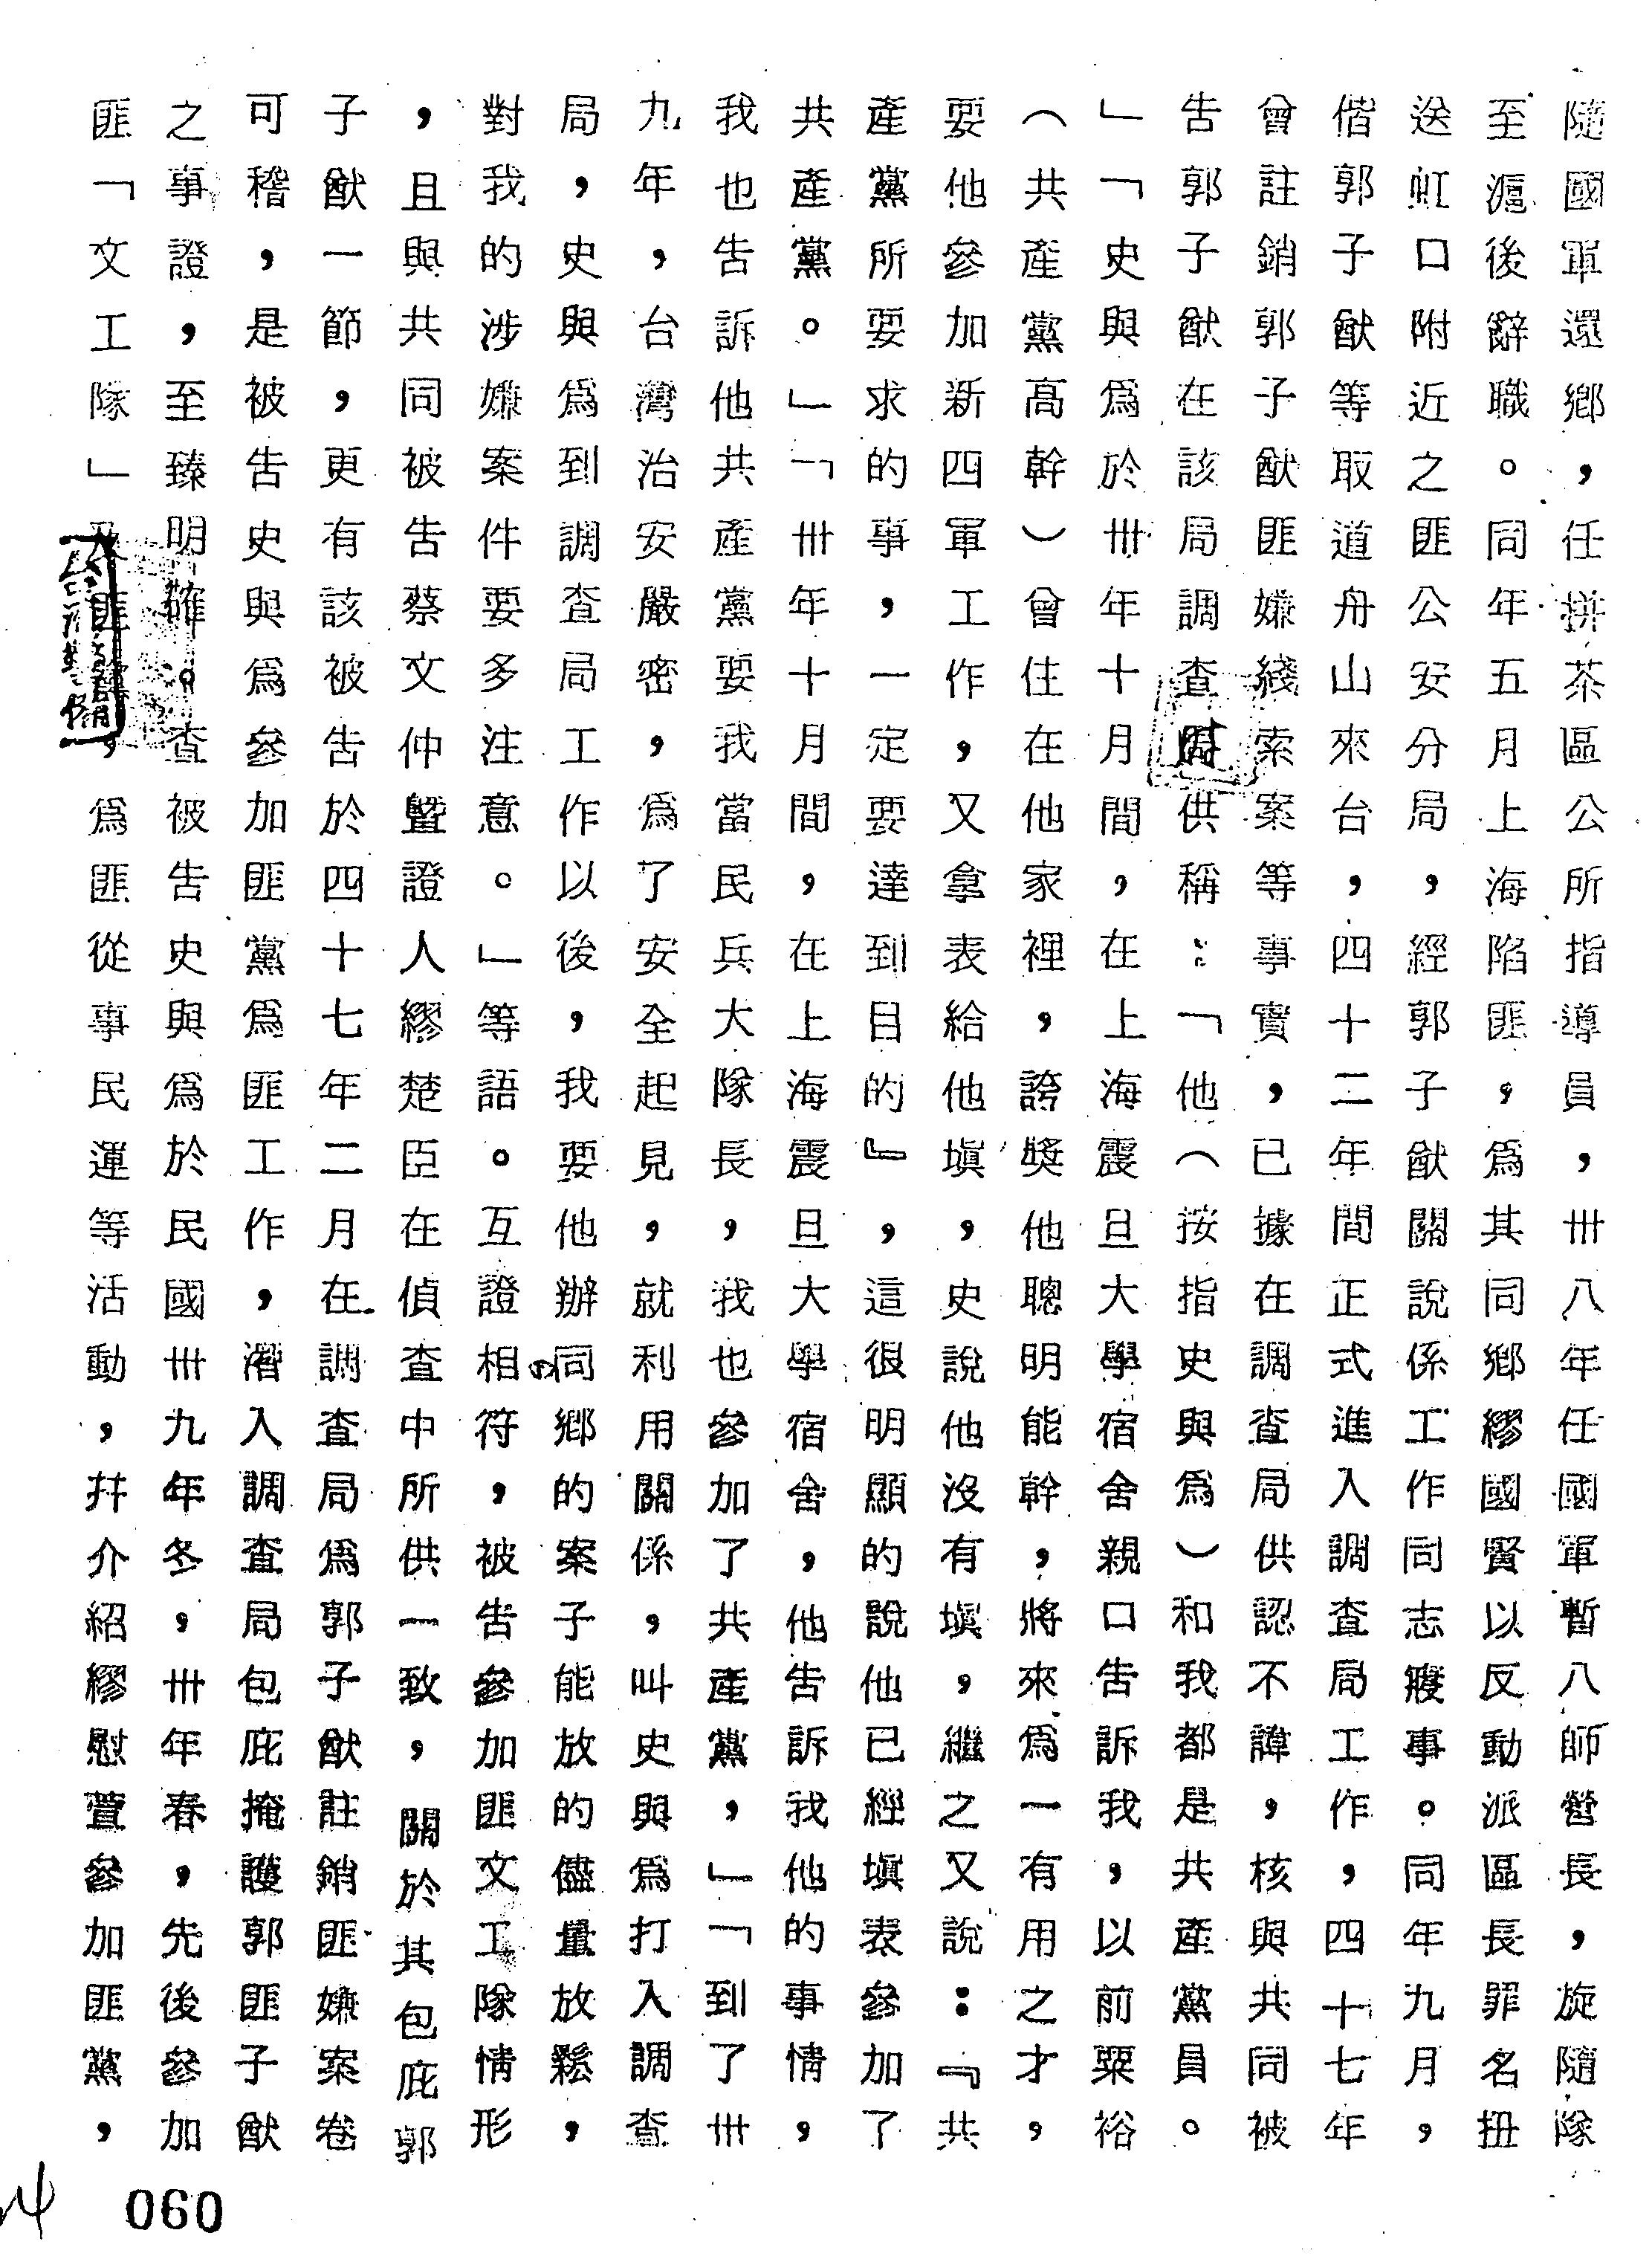 隨國軍還鄉，任拼茶區公所指導員，卅八年任國軍暫八師營長，旋隨隊
至滬後辭職。同年五月上海陷匪，爲其同鄉繆國賢以反動派區長罪名扭
送虹口附近之匪公安分局，經郭子猷關說係工作同志寢事。同年九月，
偕郭子猷等取道舟山來台，四十二年間正式進入調查局工作，四十七年
曾註銷郭子猷匪嫌綫索案等事實，已據在調查局供認不諱，核與共同被
告郭子猷在該局調查時供稱：「他（按指史與爲）和我都是共產黨員。
」「史與爲於卅年十月間，在上海震旦大學宿舍親口告訴我，以前粟裕
（共產黨高幹）曾住在他家裡，誇獎他聰明能幹，將來爲一有用之才，
要他參加新四軍工作，又拿表給他填，史說他沒有填，繼之又說：『共
產黨所要求的事，一定要達到目的』，這很明顯的說他已經填表參加了
共產黨。」「卅年十月間，在上海震旦大學宿舍，他告訴我他的事情，
我也告訴他共產黨要我當民兵大隊長，我也參加了共產黨，」「到了卅
九年，台灣治安嚴密，爲了安全起見，就利用關係，叫史與爲打入調查
局，史與爲到調查局工作以後，我要他辦同鄉的案子能放的儘量放鬆，
對我的涉嫌案件要多注意。」等語。互證相符，被告參加匪文工隊情形
，且與共同被告蔡文仲曁證人繆楚臣在偵查中所供一致，關於其包庇郭
子猷一節，更有該被告於四十七年二月在調查局爲郭子猷註銷匪嫌案卷
可稽，是被告史與爲參加匪黨爲匪工作，潛入調查局包庇掩護郭匪子猷
之事證，至臻明確。查被告史與爲於民國卅九年冬，卅年春，先後參加
匪「文工隊」及匪黨，爲匪從事民運等活動，幷介紹繆慰萱參加匪黨，
060